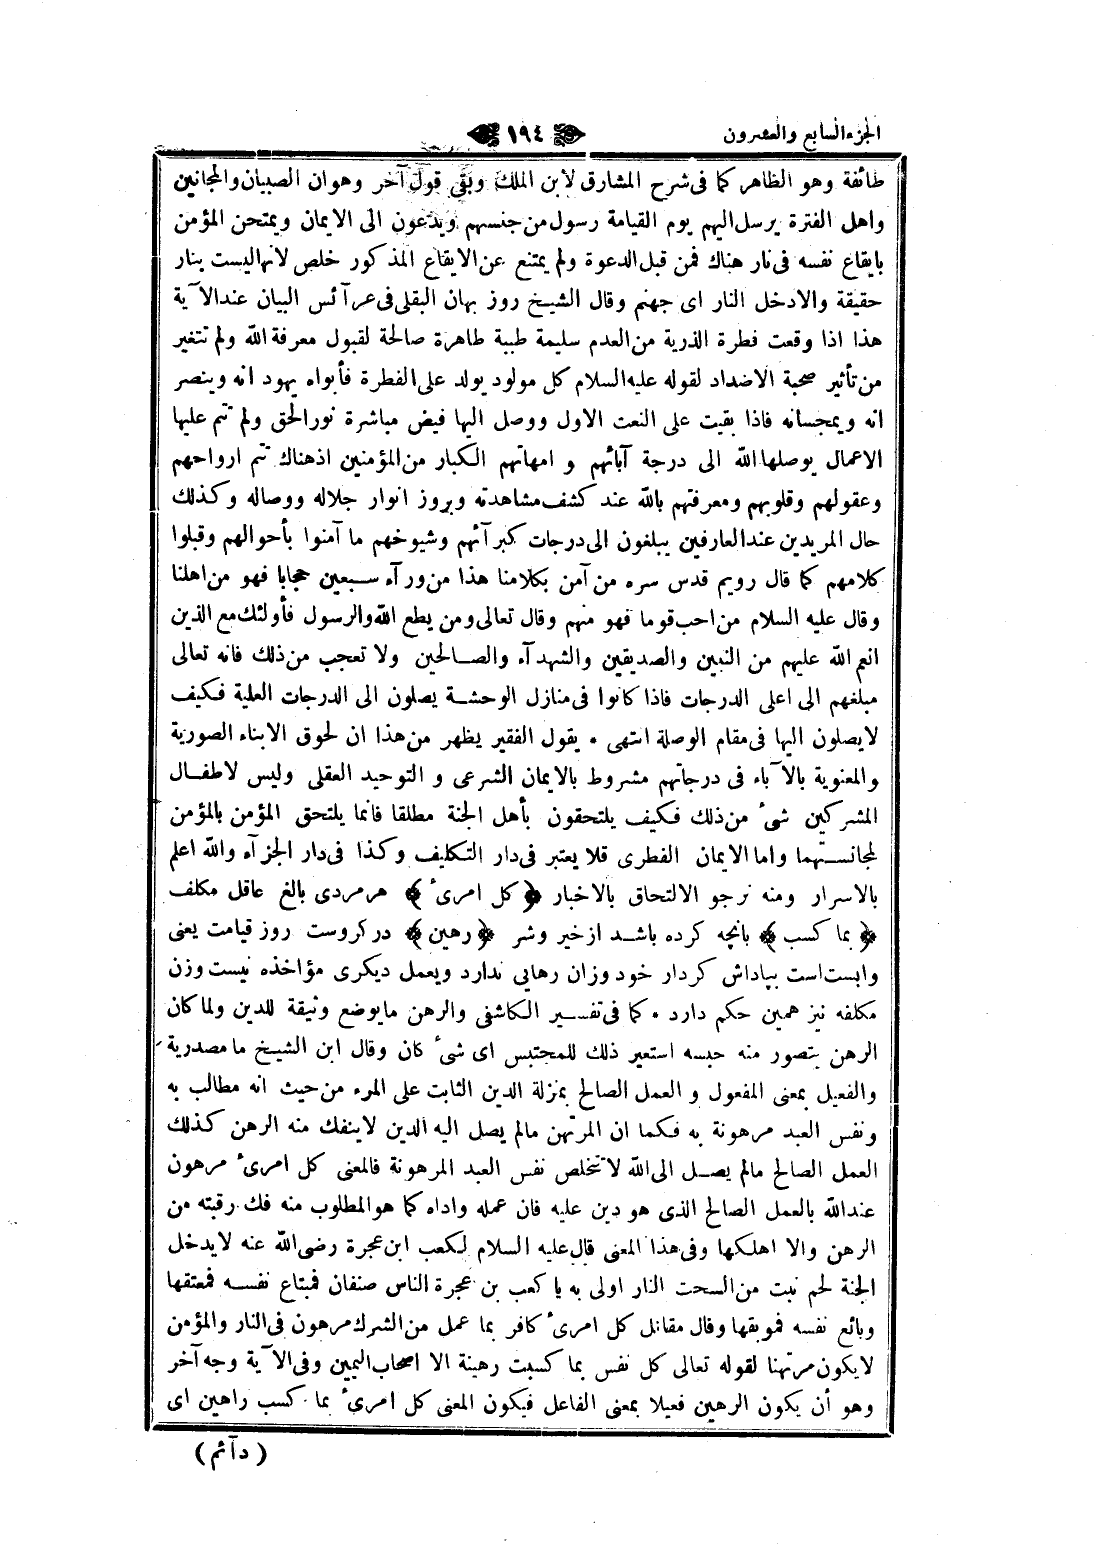 الجزء السابع والعشرون
١٩٤
طائفة وهو الظاهر كما فى شرح المشارق لابن الملك وبقى قول آخر وهوان الصبيان والمجانين
واهل الفترة يرسل اليهم يوم القيامة رسول من جنسهم ويدعون الى الايمان ويمتحن المؤمن
بايقاع نفسه فى نار هناك فمن قبل الدعوة ولم يمتنع عن الايقاع المذكور خلص لانها ليست بنار
حقيقة والادخل النار اى جهنم وقال الشيخ روز بهان البقلى فى عرآئس البيان عند الآية
هذا اذا وقعت فطرة الذرية من العدم سليمة طيبة طاهرة صالحة لقبول معرفة الله ولم تتغير
من تأثير صحبة الاضداد لقوله عليه السلام كل مولود يولد على الفطرة فأبواه يهود انه وينصر
انه ويمجسانه فاذا بقيت على النعت الاول ووصل اليها فيض مباشرة نور الحق ولم تتم عليها
الاعمال يوصلها الله الى درجة آبائهم و امهاتهم الكبار من المؤمنين اذهناك تتم ارواحهم
وعقولهم وقلوبهم ومعرفتهم بالله عند كشف مشاهدته وبروز انوار جلاله ووصاله وكذلك
حال المريدين عند العارفين يبلغون الى درجات كبرآئهم وشيوخهم ما آمنوا بأحوالهم وقبلوا
كلامهم كما قال رويم قدس سره من آمن بكلامنا هذا من ورآء سبعين حجابا فهو من اهلنا
وقال عليه السلام من احب قوما فهو منهم وقال تعالى ومن يطع الله والرسول فأولئك مع الذين
انعم الله عليهم من النبين والصديقين والشهدآء والصالحين ولا تعجب من ذلك فانه تعالى
مبلغهم الى اعلى الدرجات فاذا كانوا فى منازل الوحشة يصلون الى الدرجات العلية فكيف
لايصلون اليها فى مقام الوصلة انتهى • يقول الفقير يظهر من هذا ان لحوق الابناء الصورية
والمعنوية بالآباء فى درجاتهم مشروط بالايمان الشرعى و التوحيد العقلى وليس لاطفال
المشركين شئ من ذلك فكيف يلتحقون بأهل الجنة مطلقا فانما يلتحق المؤمن بالمؤمن
لمجانستهما واما الايمان الفطرى فلا يعتبر فى دار التكليف وكذا فى دار الجزآء والله اعلم
بالاسرار ومنه نرجو الالتحاق بالاخبار ﴿ كل امرئ ﴾ هر مردى بالغ عاقل مكلف
﴿ بما كسب ﴾ بانچه كرده باشد از خير وشر ﴿ رهين ﴾ در كروست روز قيامت يعنى
وابست است بپاداش كردار خود وزان رهايى ندارد وبعمل ديكرى مؤاخذه نيست وزن
مكلفه نيز همين حكم دارد • كما فى تفسير الكاشفى والرهن مايوضع وثيقة للدين ولما كان
الرهن يتصور منه حبسه استعير ذلك للمحتبس اى شئ كان وقال ابن الشيخ ما مصدرية
والفعيل بمعنى المفعول و العمل الصالح بمنزلة الدين الثابت على المرء من حيث انه مطالب به
ونفس العبد مرهونة به فكما ان المرتهن مالم يصل اليه الدين لاينفك منه الرهن كذلك
العمل الصالح مالم يصل الى الله لاتتخلص نفس العبد المرهونة فالمعنى كل امرئ مرهون
عند الله بالعمل الصالح الذى هو دين عليه فان عمله واداه كما هو المطلوب منه فك رقبته من
الرهن والا اهلكها وفى هذا المعنى قال عليه السلام لكعب ابن عجرة رضى الله عنه لايدخل
الجنة لحم نبت من السحت النار اولى به يا كعب بن عجرة الناس صنفان فمبتاع نفسه فمعتقها
وبائع نفسه فموبقها وقال مقاتل كل امرئ كافر بما عمل من الشرك مرهون فى النار والمؤمن
لايكون مرتهنا لقوله تعالى كل نفس بما كسبت رهينة الا اصحاب اليمين وفى الآية وجه آخر
وهو أن يكون الرهين فعيلا بمعنى الفاعل فيكون المعنى كل امرئ بما كسب راهين اى
( دآئم )